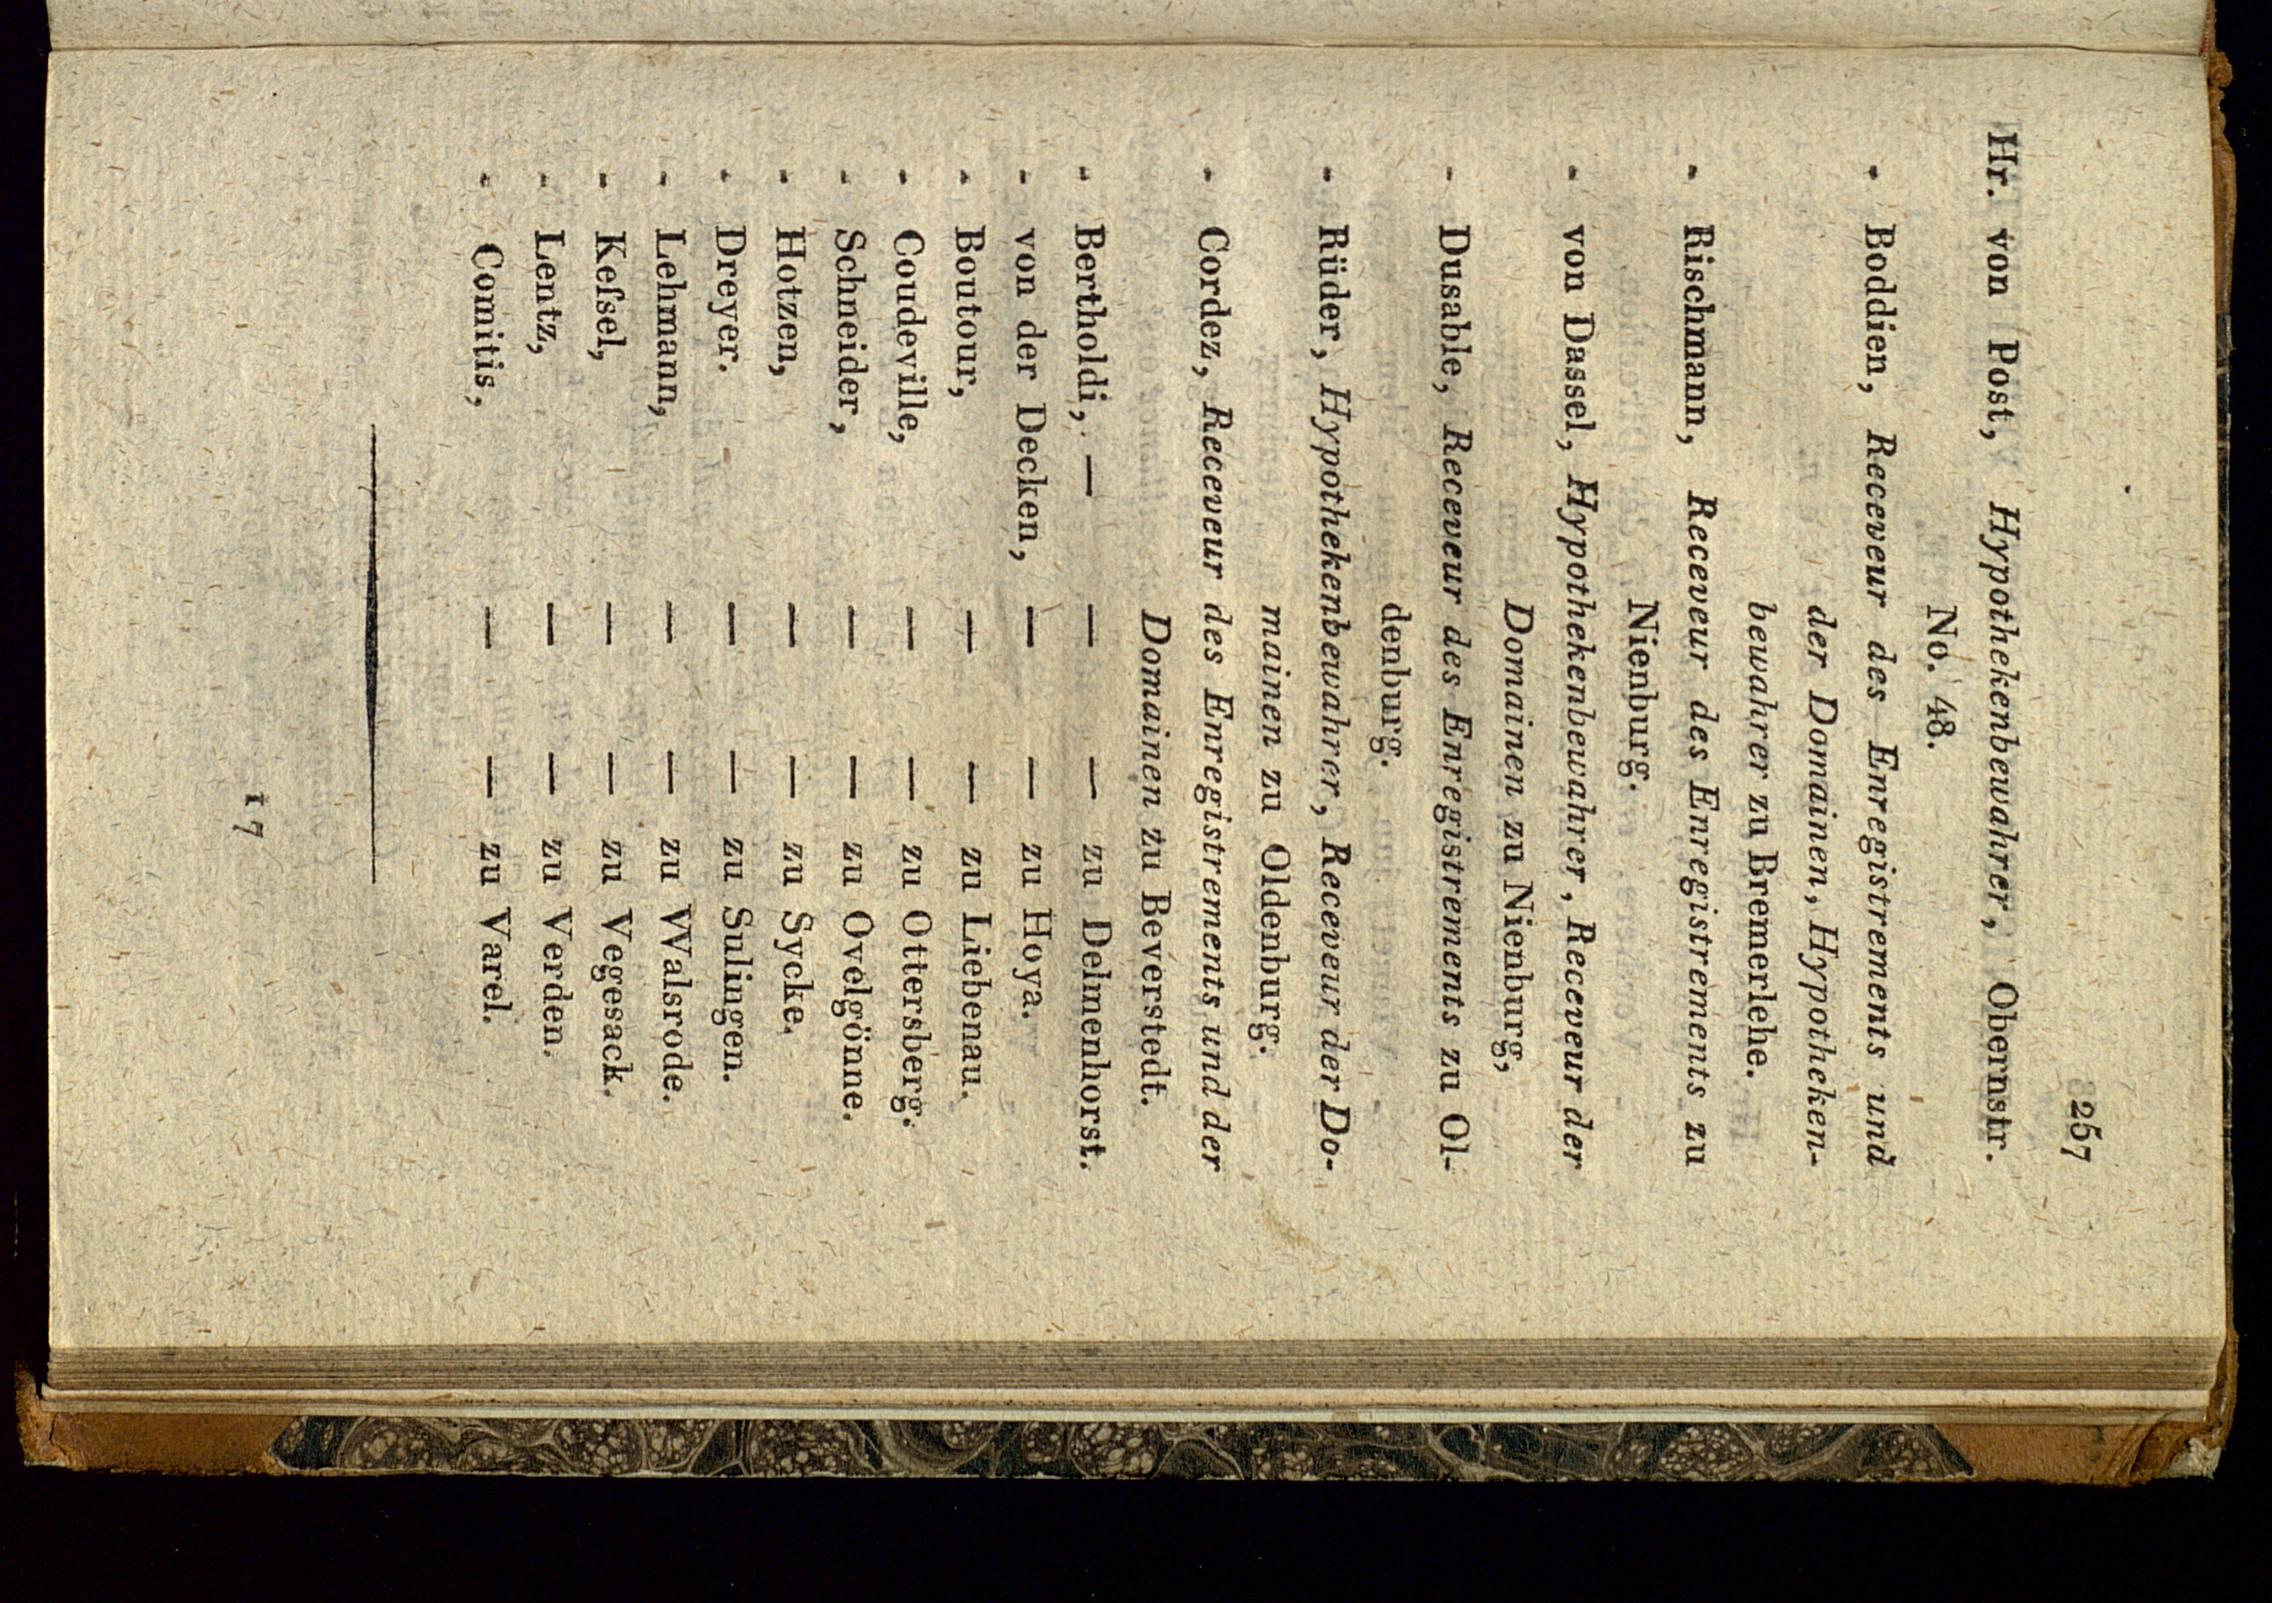 257
Hr. von Post, Hypothekenbewahrer, Obernstr.
No. 48.
- Boddien, Receveur des Enregistrements und
der Domainen, Hypotheken-
bewahrer zu Bremerlehe.
- Rischmann, Receveur des Enregistrements zu
Nienburg.
- von Dassel, Hypothekenbewahrer, Receveur der
Domainen zu Nienburg,
- Dusable, Receveur des Enregistrements zu Ol-
denburg.
- Rüder, Hypothekenbewahrer, Receveur der Do-
mainen zu Oldenburg.
- Cordez, Receveur des Enregistrements und der
Domainen zu Beverstedt.
- Bertholdi, — — — zu Delmenhorst.
- von der Decken, — — zu Hoya.
- Boutour, — — zu Liebenau.
- Coudeville, — — zu Ottersberg.
- Schneider, — — zu Ovelgönne.
- Hotzen, — — zu Sycke.
- Dreyer. — — zu Sulingen.
- Lehmann, — — zu Walsrode.
- Keſsel, — — zu Vegesack.
- Lentz, — — zu Verden.
- Comitis, — — zu Varel.
17